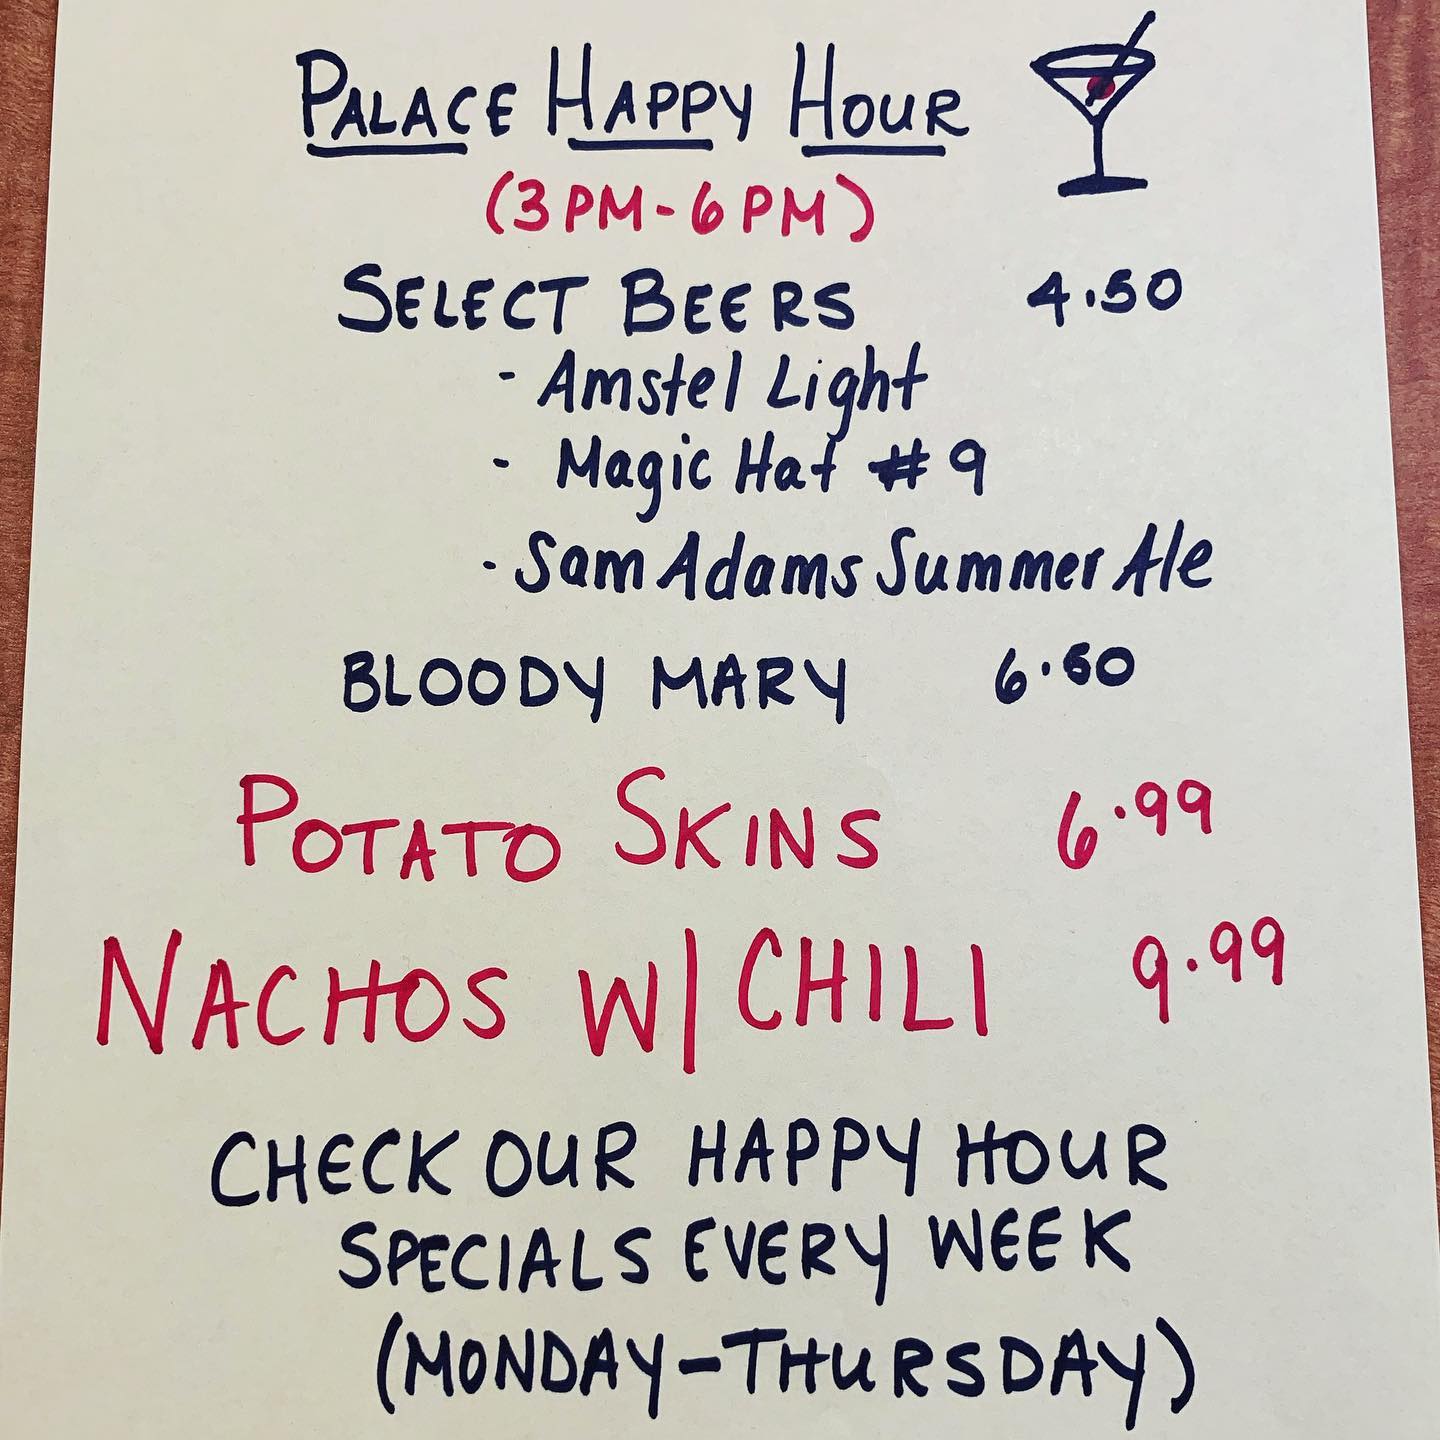 PALACE HAPPY HOUR
(3PM-6PM)
SELECT BEERS 4.50
- Amstel Light
- Magic Hat #9
- Sam Adams Summer Ale
BLOODY MARY 6.50
POTATO SKINS 6.99
NACHOS W/ CHILI 9.99
CHECK OUR HAPPY HOUR
SPECIALS EVERY WEEK
(MONDAY-THURSDAY)